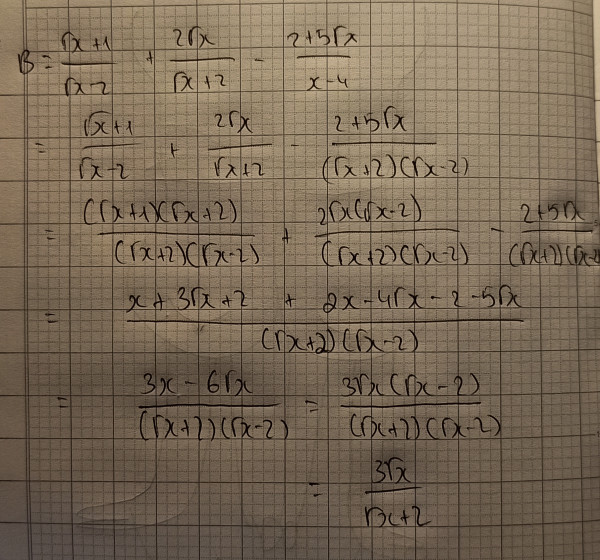 B = (√x+1)/(√x-2) + 2√x/(√x+2) - (2+5√x)/(x-4)
= (√x+1)/(√x-2) + 2√x/(√x+2) - (2+5√x)/((√x+2)(√x-2))
= ((√x+1)(√x+2))/((√x+2)(√x-2)) + 2√x(√x-2)/((√x+2)(√x-2)) - (2+5√x)/((√x+2)(√x-2
= (x+3√x+2 + 2x-4√x-2-5√x)/((√x+2)(√x-2))
= (3x-6√x)/((√x+2)(√x-2)) = 3√x(√x-2)/((√x+2)(√x-2))
= 3√x/(√x+2)